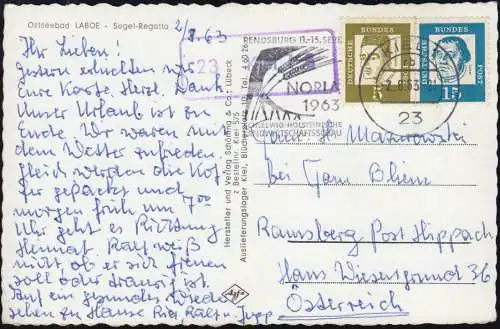 Ostseebad LABOE - Segel-Regatta
2/8.63
Ihr Lieben!
gestern erhielten wir
Eure Karte. Herzl. Dank.
Unser Urlaub ist zu
Ende. Wir waren mit
dem Wetter zufrieden.
gleich werden die Kof-
fer gepackt und
morgen früh um 7
Uhr geht es Richtung
Heimat. Ralf weiß
nicht ob er sich freuen
soll oder
Auf ein gesundes Wieder-
sehen zu Hause Ralf u. Jupp
Hersteller und Verlag Schöning & Co., Lübeck
Auslieferungslager Kiel,
RENDSBURG 11.-15. SEPT.
NORLA
1963
SCHLESWIG-HOLSTEINISCHE
LANDWIRTSCHAFTSSCHAU
23
23
DEUTSCHE
BUNDES
POST
5
DEUTSCHE
BUNDES
POST
15
Fam. H.
bei Fam.
Ramsberg Post Hippach
Hans Wiesengrund 36
Österreich
Agfa